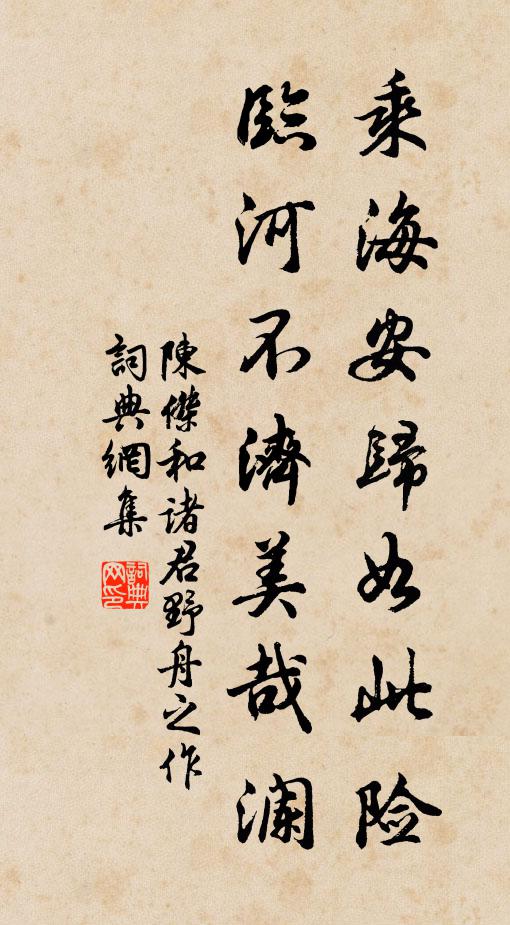 乘海安歸如此险
臨河不濟美哉澜
陳傑和诸君野舟之作
詞典網集
詞典网印